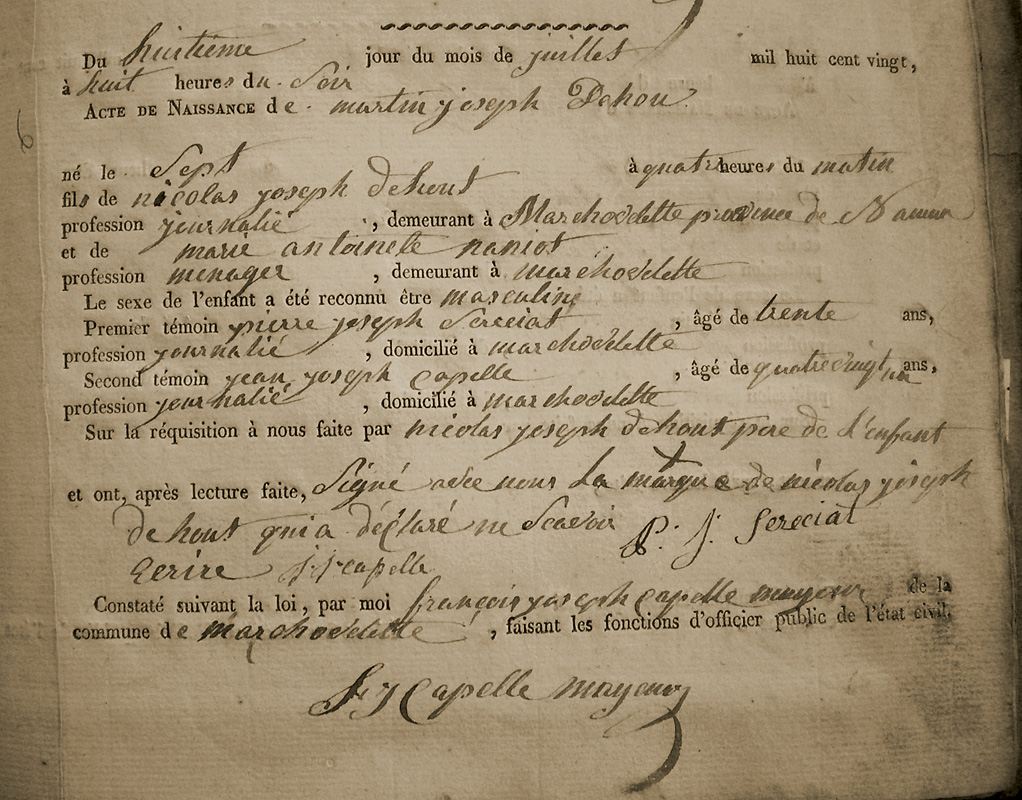 Du huitième jour du mois de juillet mil huit cent vingt,
à huit heures du Soir
ACTE DE NAISSANCE de martin joseph Dehou
né le Sept à quatr heures du matin
fils de nicolas joseph dehout
profession journalié , demeurant à Marchovelette province de Namur
et de marie antoinete naniot
profession menager , demeurant à marchovelette
Le sexe de l'enfant a été reconnu être masculin
Premier témoin pierre joseph Sereciat , âgé de trente ans,
profession journalié , domicilié à marchovelette
Second témoin jean joseph capelle , âgé de quatrevingt un ans,
profession journalié , domicilié à marchovelette
Sur la réquisition à nous faite par nicolas joseph dehout pere de l'enfant
et ont, après lecture faite, Signé avec nous La marque de nicolas joseph
de hout qui a déclaré ne Scavoir P. J. Sereciat
Ecrire J J capelle
Constaté suivant la loi, par moi françois joseph capelle mayeur de la
commune de marchovelette , faisant les fonctions d'officier public de l'état civil.
F J Capelle mayeur